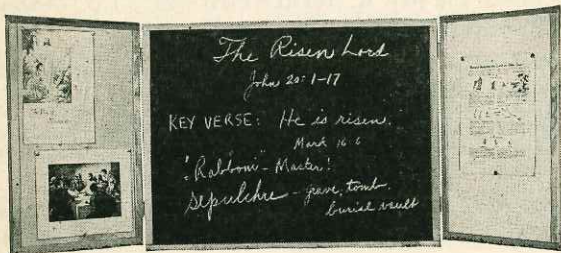 The Risen Lord
John 20:1-17
KEY VERSE: He is risen.
Mark 16:6
"Rabboni" - Master!
Sepulchre - grave, tomb,
burial vault